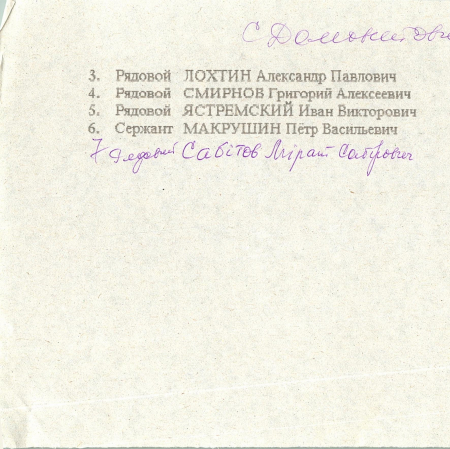 с Домонтови
3. Рядовой ЛОХТИН Александр Павлович
4. Рядовой СМИРНОВ Григорий Алексеевич
5. Рядовой ЯСТРЕМСКИЙ Иван Викторович
6. Сержант МАКРУШИН Пётр Васильевич
7 Рядовий Сабітов Мірат Сабірович